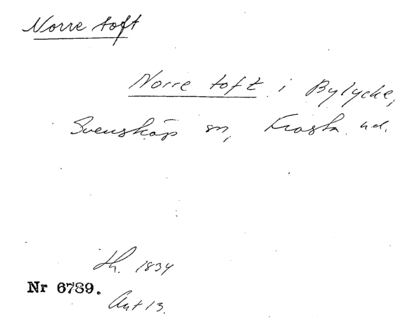 Norre toft
Norre toft i Bylycke,
Svensköp sn, Frosta hd.
Lh. 1834
Nr 6789.
Art 13.